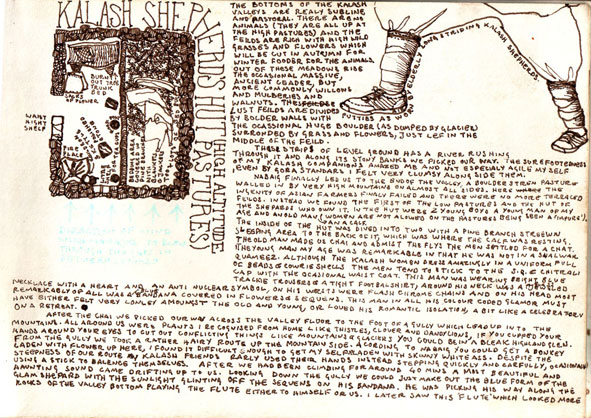 KALASH SHEPHERDS HUT (HIGH ALTITUDE PASTURES)
BURNT OUT TREE TRUNK BED
SACKS OF FLOWER
WAIST HIGHT SHELF
FIRE PLACE
THE BOTTOMS OF THE KALASH
VALLEYS ARE REALY SUBLINE
AND PASTORAL. THERE ARE NO
ANIMALS (THEY ARE ALL UP AT
THE HIGH PASTURES) AND THE
FEILDS ARE RICH WITH HIGH WILD
GRASSES AND FLOWERS WHICH
WILL BE CUT IN AUTUMN FOR
WINTER FODDER FOR THE ANIMALS.
OUT OF THESE MEADOWS RISE
THE OCCASIONAL MASSIVE,
ANCIENT CEADER, BUT
MORE COMMONLY WILLOWS
AND MULBERIES AND
WALNUTS. THESE
LUST FEILDS ARE DIVIDED
BY BOLDER WALLS WITH
THE OCASSIONAL HUGE BOULDER (AS DUMPED BY GLACIER)
SURRONDED BY GRASS AND FLOWERS, JUST LEF IN THE
MIDDLE OF THE FEILD.
PUTTIES AS WORN BY ELDERLY LONG STRIDING KALASH SHEPHERDS
THESE STRIPS OF LEVEL GROUND HAS A RIVER RUSHING
THROUGH IT AND ALONG ITS STONY BANKS WE PICKED OUR WAY. THE SUREFOOTEDNESS
OF MY KALASH COMPANIONS AMAZED ME AND NOT ESPECIALY AGILE MYSELF
(EVEN BY GORA STANDARDS) I FELT VERY CLUMSY ALONG SIDE THEM.
NABAIG FINALLY LED US TO THE END OF THE VALLEY, A BOULDER STREWN PASTURE
WALLED IN BY VERY HIGH MOUNTAINS ON ALMOST ALL SIDES. HERE THE
INGENITY OF ASIAN FARMERS FINALY FAILED AND THERE WERE NO MORE TERRACED
FEILDS. INSTEAD WE FOUND THE FIRST OF THE LOW PASTURES AND THE HUT OF
THE SHEPARDS WHO OWN IT. IN THE HUT WERE 2 YOUNG BOYS A YOUNG MAN OF MY
AGE AND AN OLD MAN (WOMEN ARE NOT ALLOWED ON THE PASTURES BEING SEEN AS IMPURE).
THE INSIDE OF THE HUT WAS DIVID INTO TWO WITH A PINE BRANCH STREEWN
SLEEPING AREA TO THE BACK OF IT, WHICH WAS WHERE THE CALF WAS RESTING.
THE OLD MAN MADE US CHAI AND ADMIST THE FLYS THE MEN SETTLED FOR A CHAT.
THE YOUNG MAN MY AGE WAS REMARKABLE IN THAT HE WAS NOT IN A SHALWAR
QUAMEEZ. ALTHOUGH THE KALASH WOMEN DRESS AMORUSLY IN A UNIFORM FULL
OF BEADS & COWRIE SHELLS THE MEN TEND TO STICK TO THE S.Q. & CHITRALI
CAP WITH THE OCASIONAL WAIST COAT. THIS MAN WAS WEARING BRIGHT BLUE
TRAKIE TROUSERS & TIGHT FOOTBALSHIRT, AROUND HIS NECK WAS A JEWELLED
NECKLACE WITH A HEART AND AN ANTI NUCLEAR SYMBOL, ON HIS WRISTS WERE FLASH CHROME CHAINS AND ON HIS HEAD MOST
REMARKABLY OF ALL WAS A BANDANA COVERED IN FLOWERS & SEQUENS. THIS MAN IN ALL HIS COLOUR CODED GLAMOR MUST
HAVE EITHER FELT VERY LONLEY AMOUNGST THE OLD AND YOUNG OR LOVED HIS ROMANTIC ISOLATION, A BIT LIKE A CELEBRATORY
ON A RETREAT.
AFTER THE CHAI WE PICKED OUR WAY ACROSS THE VALLEY FLOOR TO THE FOOT OF A GULLY WHICH LEAD UP INTO THE
MOUNTAINS. ALL AROUND US WERE PLANTS I RECOGNISED FROM HOME LIKE THISTLES, CLOVER AND DANDILIONS, IF YOU CUPPED YOUR
HANDS AROUND YOUR EYES TO CUT OUT CONFLICTING THINGS LIKE MOUNTAINS & GLACIERS YOU COULD BE IN A BLEAK HIGHLAND GLEN.
FROM THE GULLY WE TOOK A RATHER HAIRY ROUTE UP THE MOUNTAIN SIDE. ACCORDING TO NABAIG, YOU COULD GET A DONKEY
LADEN WITH FLOWER UP HERE, I FOUND IT DIFFICULT ENOUGH TO GET MY SELF LADEN WITH SKINNY WHITE ASS. DESPITE THE
STEEPNESS OF OUR ROUTE MY KALASH FRIENDS RARELY USED THEIR HANDS INSTEAD STEPPING QUICKLY AND CAREFULLY, OCASIONALY
USING A STICK TO BALENCE THEMSELVES. AFTER WE HAD BEEN CLIMBING FOR AROUND 40 MINS A MOST BEAUTIFUL AND
HAUNTING SOUND CAME DRIFTING UP TO US. LOOKING DOWN THE GULLY WE COULD JUST MAKE OUT THE BLUE FORM OF THE
GLAM SHEPARD WITH THE SUNLIGHT GLINTING OFF THE SEQUENS ON HIS BANDANA, HE WAS PICKING HIS WAY ALONG THE
ROCKS OF THE VALLEY BOTTOM PLAYING THE FLUTE EITHER TO HIMSELF OR US. I LATER SAW THIS 'FLUTE' WHICH LOOKED MORE